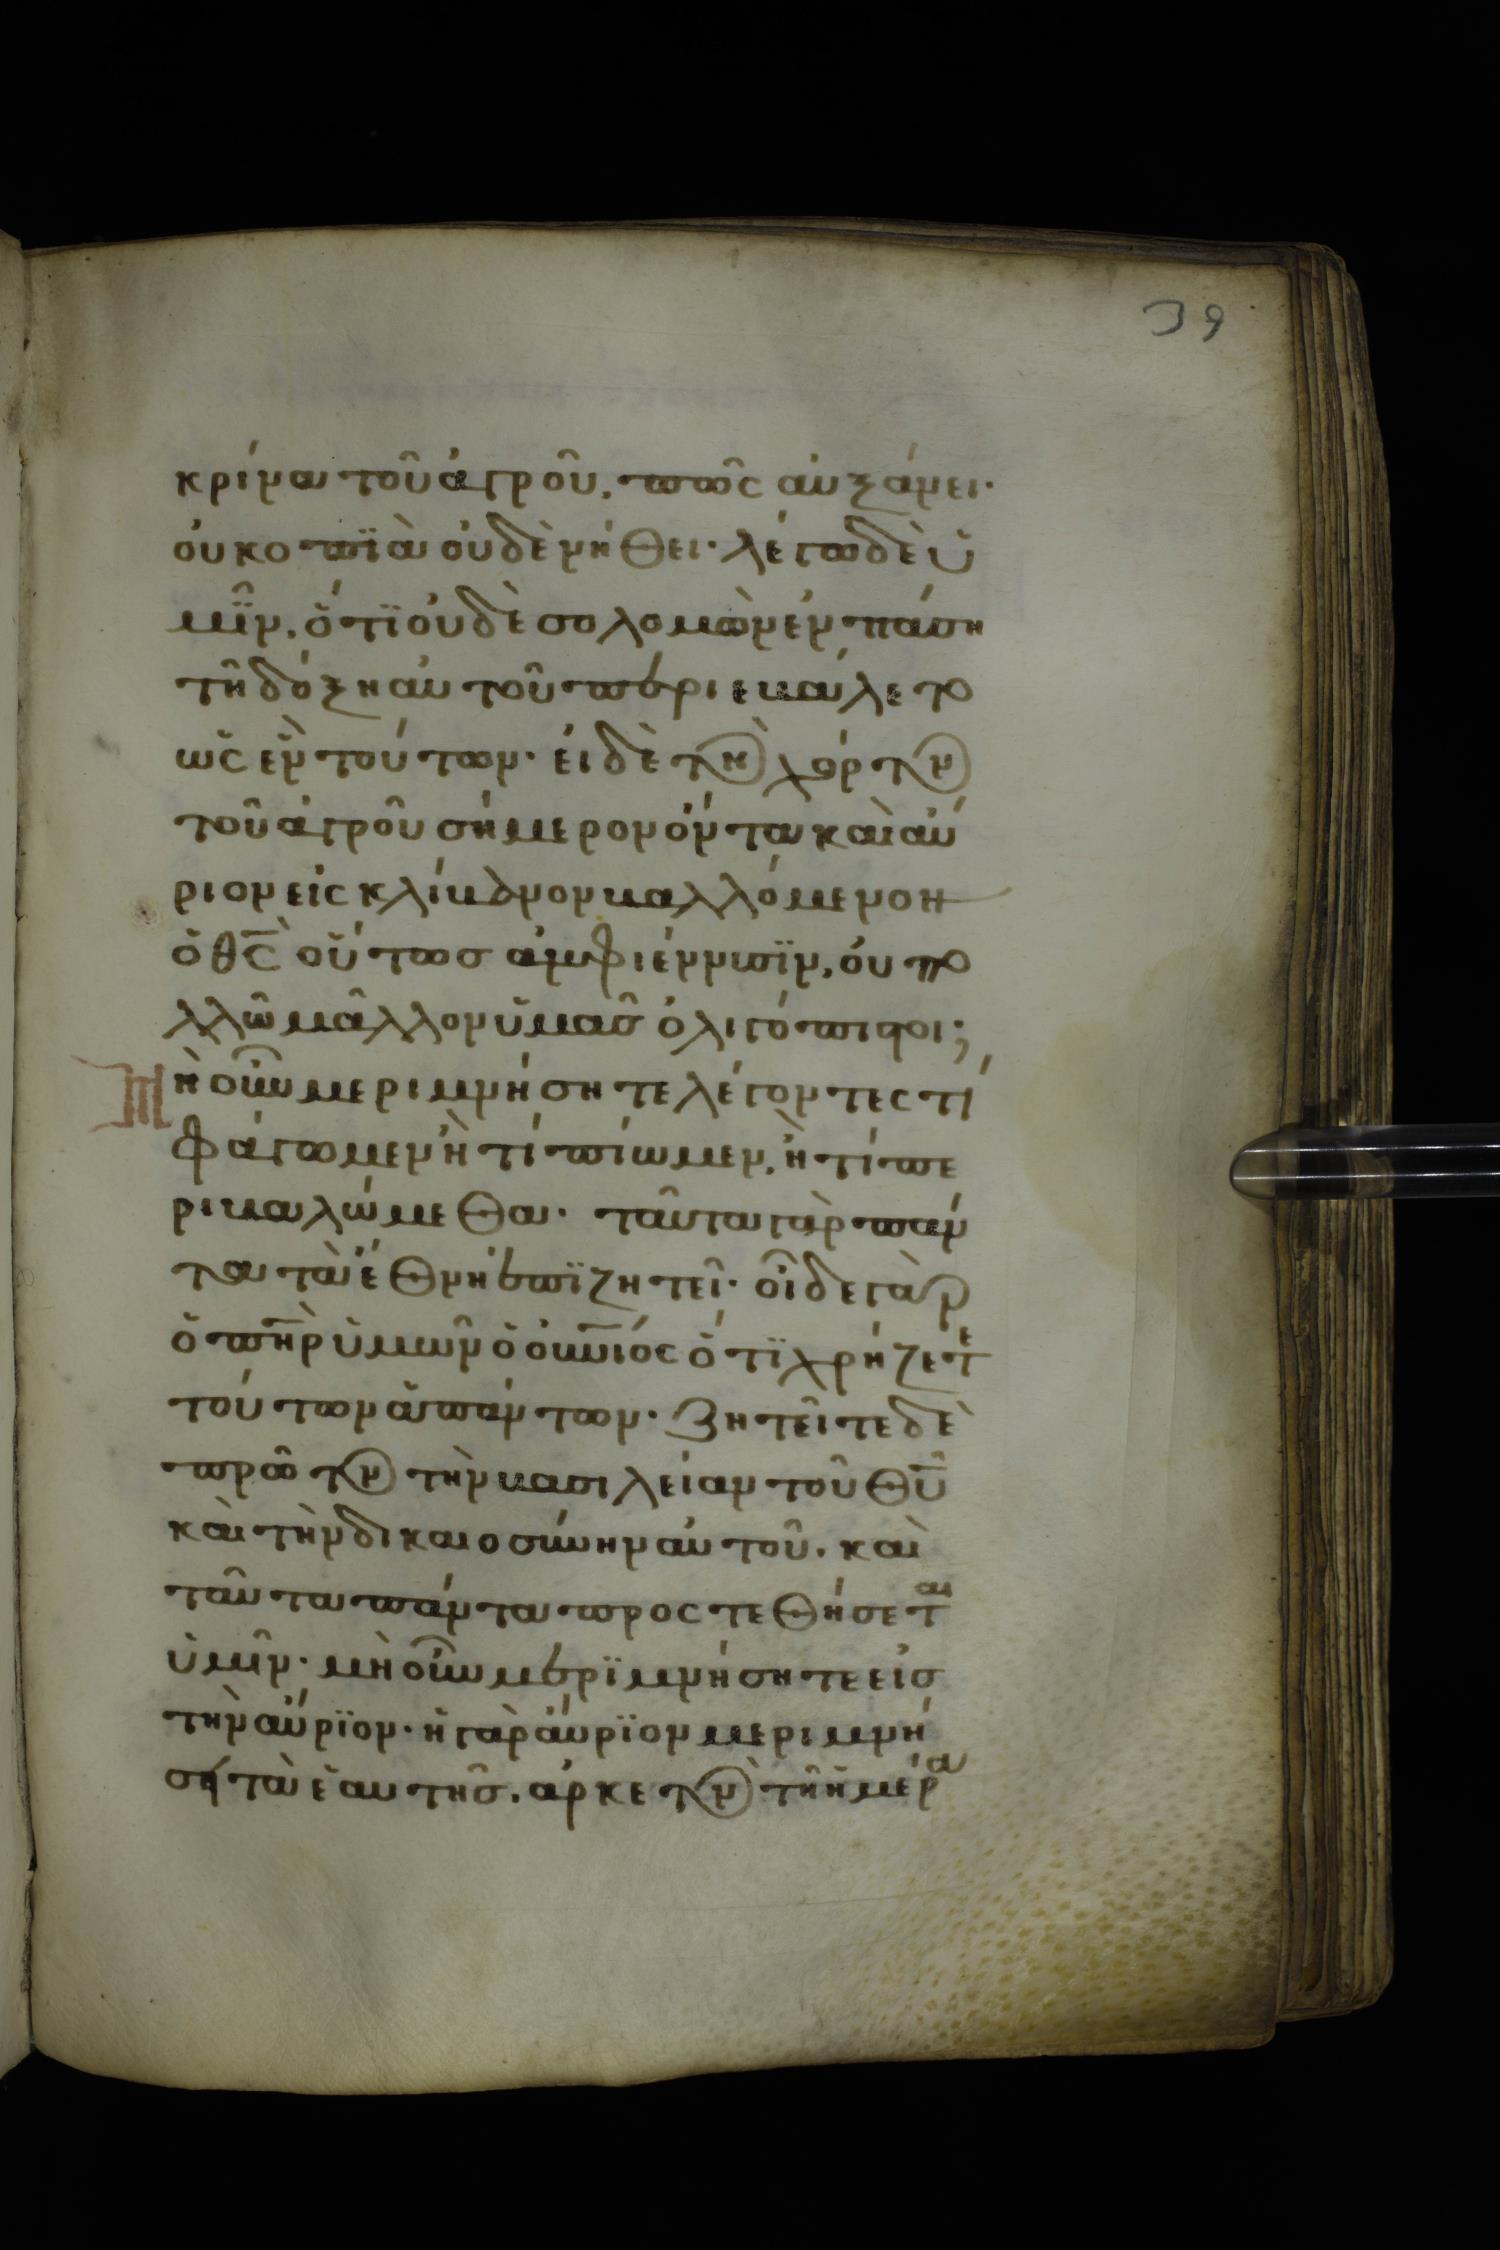 39
κρίνα τοῦ ἀγροῦ, πῶς αὐξάνει·
οὐ κοπϊὰ οὐδὲ νήθει· λέγω δὲ ὑ
μῖν, ὅτϊ οὐδὲ σολομὼν ἐν πάση
τῆ δόξη αὐτοῦ περιεβάλετο
ὡς ἓν τούτων· εἰ δὲ τὸν χόρτον
τοῦ ἀγροῦ σήμερον ὄντα καὶ αὔ
ριον εἰς κλίβανον βαλλόμενον
ὁ θς̅ οὕτως ἀμφιέννυσϊν, οὐ πο
λλῶ μᾶλλον ὑμᾶς ὀλιγόπιστοι;
Μὴ οὖν μεριμνήσητε λέγοντες τί
φάγωμεν ἢ τί πίωμεν, ἢ τί πε
ριβαλώμεθα· ταῦτα γὰρ πάν
τα τὰ ἔθνη ἐπϊζητεῖ· οἶδε γὰρ
ὁ πη̅ρ ὑμῶν ὁ οὐν̅ιος ὅτϊ χρήζετε
τούτων ἁπάντων· Ζητεῖτε δὲ
πρῶτον τὴν βασιλείαν τοῦ θυ̅
καὶ τὴν δικαιοσύνην αὐτοῦ. καὶ
ταῦτα πάντα προστεθήσεται
ὑμῖν· μὴ οὖν μερϊμνήσητε εἰς
τὴν αὔρϊον· ἡ γὰρ αὔρϊον μεριμνή
σει τὰ ἑαυτῆς. ἀρκετὸν τῆ ἡμέρα